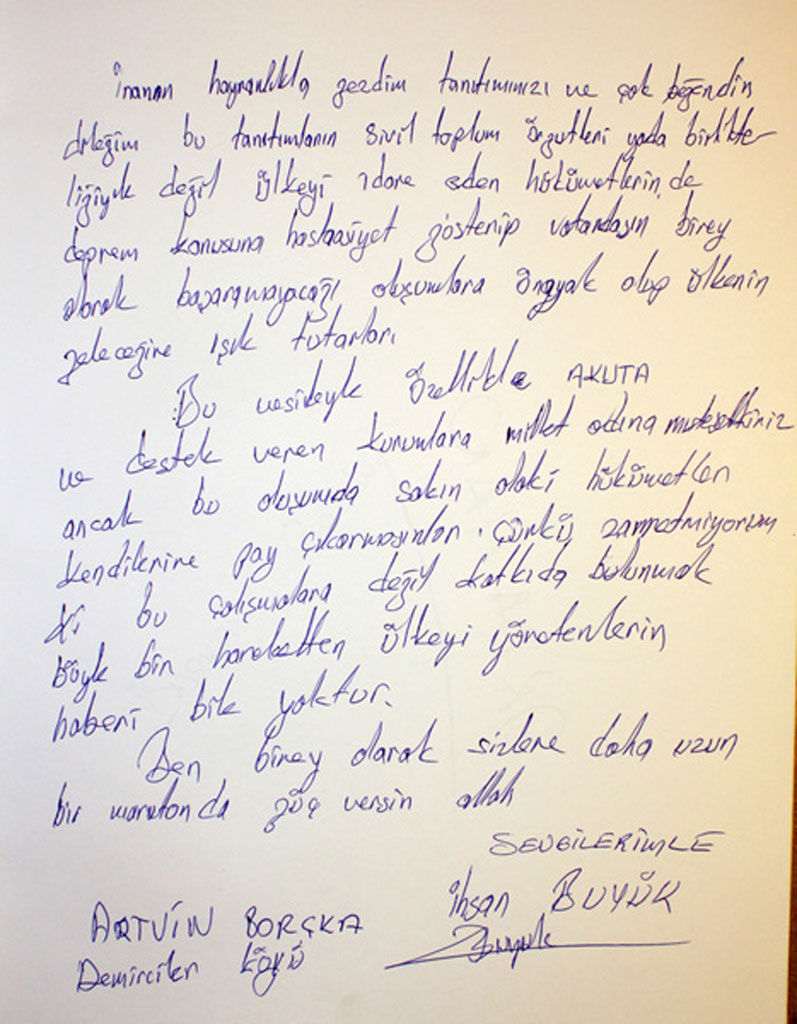 İnanan hayranlıkla gezdim tanıtımınızı ve çok beğendim
dileğim bu tanıtımların sivil toplum örgütleri yada birlikte
liğiyle değil ülkeyi idare eden hükümetlerin de
deprem konusuna hassasiyet gösterip vatandaşın birey
olarak başaramayacağı oluşumlara önayak olup ülkenin
geleceğine ışık tutarlar.
Bu vesileyle özellikle AKUTA
ve destek veren kurumlara millet adına müteşekkiriz
ancak bu oluşumda sakın olaki hükümetler
kendilerine pay çıkarmasınlar. çünkü zannetmiyorum
ki bu çalışmalara değil katkıda bulunmak
böyle bir hareketten ülkeyi yönetenlerin
haberi bile yoktur.
Ben birey olarak sizlere daha uzun
bir maraton da güç versin allah
SEVGİLERİMLE
İhsan BUYÜK
ARTVİN BORÇKA
Demirciler Köyü